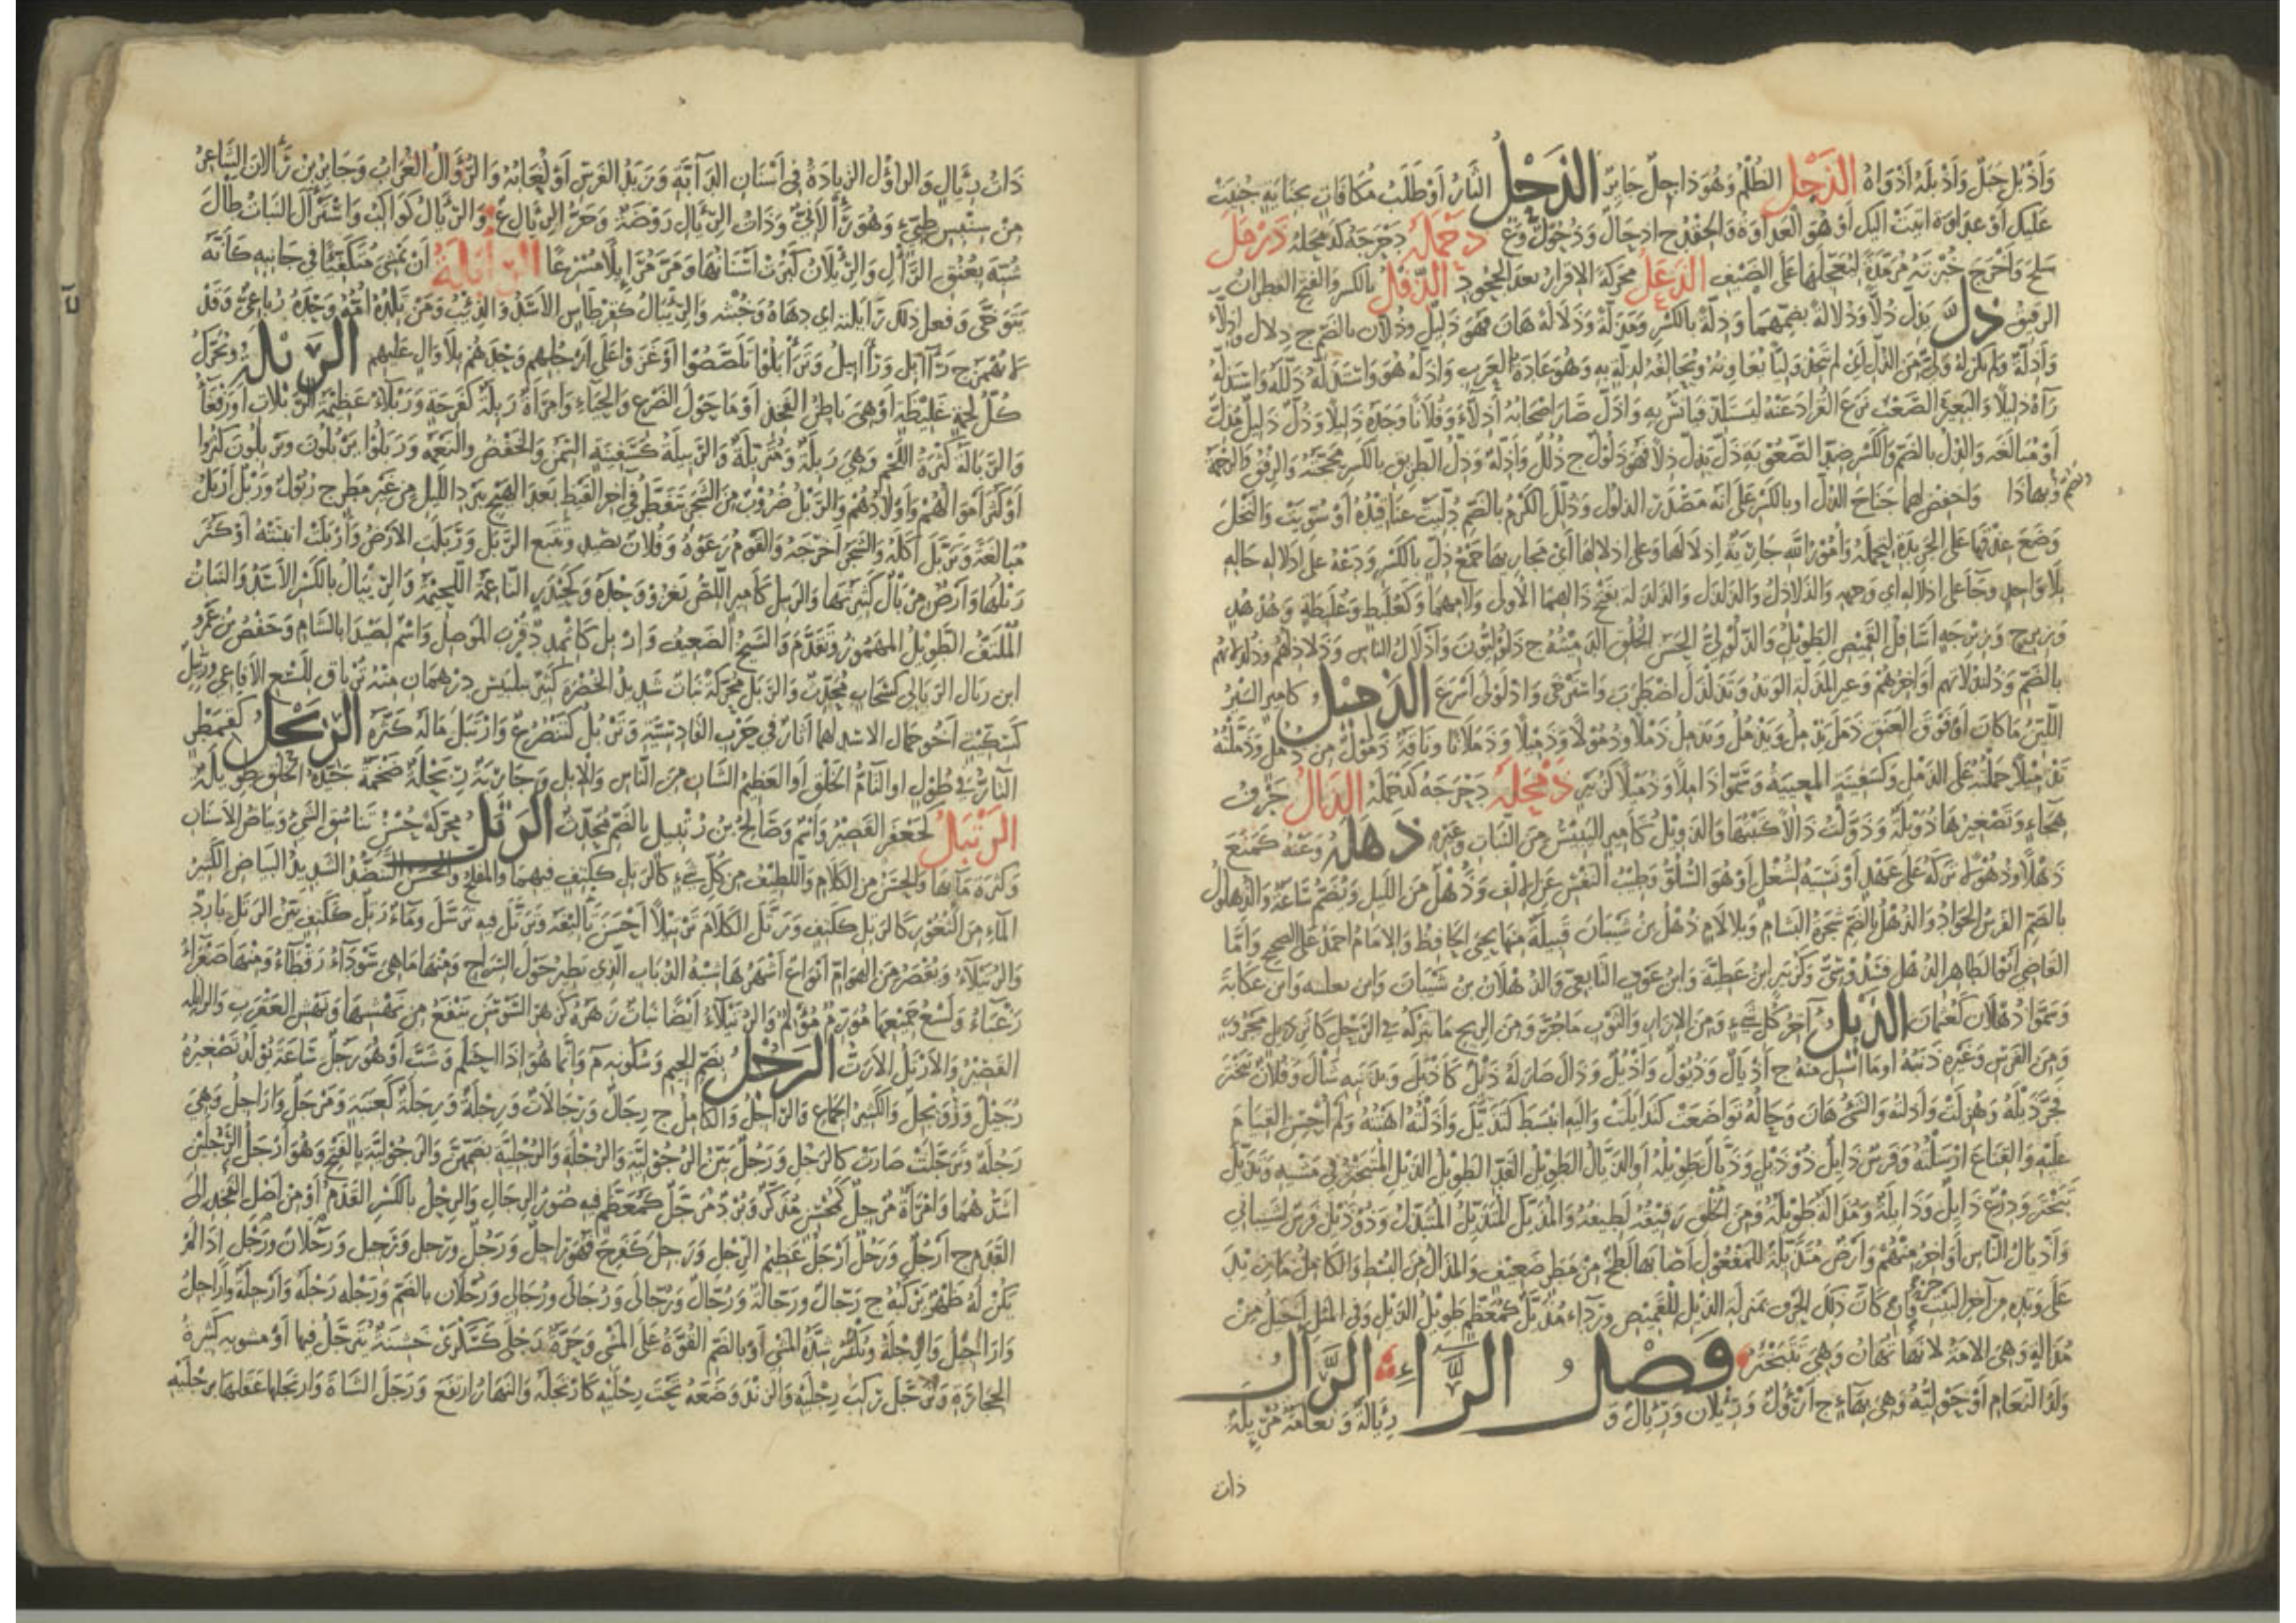 وَأَذْبُلُ جَبَلٌ وَأَذْبَلَهُ أَذْوَاهُ الذَّجْلُ الظُّلْمُ وَهُوَ ذَاجِلٌ جَائِرٌ الذَّحْلُ الثَّأْرُ أَوْ طَلَبُ مُكَافَأَةٍ بِجِنَايَةٍ جُنِيَتْ
عَلَيْكَ أَوْ عَدَاوَةٍ أُتِيَتْ إِلَيْكَ أَوْ هُوَ الْعَدَاوَةُ وَالْحِقْدُ ج أَذْحَالٌ وَذُحُولٌ وَع ذَحْمَلَهُ دَحْرَجَهُ كَذَمْحَلَهُ ذَرْمَلَ
سَلَحَ وَأَخْرَجَ خُبْزَتَهُ مُرَمَّدَةً لِيُعَجِّلَهَا عَلَى الضَّيْفِ الذَّعَلُ مُحَرَّكَةً الإِقْرَارُ بَعْدَ الْجُحُودِ الذِّفْلُ بِالْكَسْرِ وَالْفَتْحِ الْقَطِرَانُ
الرَّقِيقُ ذَلَّ يَذِلُّ ذُلًّا وَذُلَالَةً بِضَمِّهِمَا وَذِلَّةً بِالْكَسْرِ وَمَذَلَّةً وَذَلَالَةً هَانَ فَهُوَ ذَلِيلٌ وَذُلَّانٌ بِالضَّمِّ ج ذِلَالٌ وَأَذِلَّاءُ
وَأَذِلَّةٌ وَلَمْ يَكُنْ لَهُ وَلِيٌّ مِنَ الذُّلِّ أَيْ لَمْ يَتَّخِذْ وَلِيًّا يُعَاوِنُهُ وَيُحَالِفُهُ لِذِلَّةٍ بِهِ وَهُوَ عَادَةُ الْعَرَبِ وَأَذَلَّهُ هُوَ وَاسْتَذَلَّهُ ذَلَّلَهُ وَاسْتَذَلَّهُ
رَآهُ ذَلِيلًا وَالْبَعِيرَ الصَّعْبَ نَزَعَ الْقُرَادَ عَنْهُ لِيَسْتَلِذَّ فَيَأْنَسَ بِهِ وَأَذَلَّ صَارَ أَصْحَابُهُ أَذِلَّاءَ وَفُلَانًا وَجَدَهُ ذَلِيلًا وَذُلٌّ ذَلِيلٌ مُذِلٌّ
أَوْ مُبَالَغَةٌ وَالذُّلُّ بِالضَّمِّ وَالْكَسْرِ ضِدُّ الصُّعُوبَةِ ذَلَّ يَذِلُّ ذِلًّا فَهُوَ ذَلُولٌ ج ذُلُلٌ وَأَذِلَّةٌ وَذِلُّ الطَّرِيقِ بِالْكَسْرِ مَحَجَّتُهُ وَالرِّفْقُ وَالرَّحْمَةُ
وَيُضَمُّ وَبِهَا قُرِئَ وَاخْفِضْ لَهُمَا جَنَاحَ الذُّلِّ أَوْ بِالْكَسْرِ عَلَى أَنَّهُ مَصْدَرُ الذَّلُولِ وَذُلِّلَ الْكَرْمُ بِالضَّمِّ دُلِّيَتْ عَنَاقِيدُهُ أَوْ سُوِّيَتْ وَالنَّخْلُ
وُضِعَ عِذْقُهَا عَلَى الْجَرِيدَةِ لِتَحْمِلَهُ وَأُمُورُ اللهِ جَارِيَةٌ إِذْلَالَهَا وَعَلَى إِذْلَالِهَا أَيْ مَجَارِيهَا جَمْعُ ذِلٍّ بِالْكَسْرِ وَدَعْهُ عَلَى إِذْلَالِهِ حَالِهِ
بِلَا وَاحِدٍ وَجَاءَ عَلَى إِذْلَالِهِ أَيْ وَجْهِهِ وَالذَّلَاذِلُ وَالذَّلَذِلُ وَالذَّلَذِلَةُ بِفَتْحِ ذَالِهِمَا الْأُولَى وَلَامِهِمَا وَكَعُلَبِطٍ وَعُلَبِطَةٍ وَهُدْهُدٍ
وَزِبْرِجٍ وَزِبْرِجَةٍ أَسَافِلُ الْقَمِيصِ الطَّوِيلِ وَالذَّلَوْلِيُّ الْحَسَنُ الْخُلُقِ الدَّمِيثُهُ ج ذَلَوْلِيُّونَ وَأَذْلَالُ النَّاسِ وَذَلَاذِلُهُمْ وَذُلَيْذِلَاتُهُمْ
بِالضَّمِّ وَذُلَيْذِلَاتُهُمْ أَوَاخِرُهُمْ وَعَيْرُ الْمَذَلَّةِ الْوَتِدُ وَتَذَلْذَلَ اضْطَرَبَ وَاسْتَرْخَى وَاذْلَوْلَى أَسْرَعَ الذَّمِيلُ كَأَمِيرٍ السَّيْرُ
اللَّيِّنُ مَا كَانَ أَوْ فَوْقَ الْعَنَقِ ذَمَلَ يَذْمِلُ وَيَذْمُلُ ذَمْلًا وَذُمُولًا وَذَمِيلًا وَذَمَلَانًا وَنَاقَةٌ ذَمُولٌ مِنْ ذُمُلٍ وَذَمَّلْتُهُ
تَذْمِيلًا حَمَلْتُهُ عَلَى الذَّمِيلِ وَكَسَفِينَةٍ الْمُعْيِيَةُ وَسَمَّوْا ذَامِلًا وَذُمَيْلًا كَزُبَيْرٍ ذَمْحَلَهُ دَحْرَجَهُ كَذَحْمَلَهُ الذَّالُ حَرْفُ
هِجَاءٍ وَتَصْغِيرُهَا ذُوَيْلَةٌ وَذَوَّلْتُ ذَالًا كَتَبْتُهَا وَالذَّوِيلُ كَأَمِيرٍ الْيَبِيسُ مِنَ النَّبَاتِ وَغَيْرِهِ ذَهَلَهُ وَعَنْهُ كَمَنَعَ
ذَهْلًا وَذُهُولًا تَرَكَهُ عَلَى عَمْدٍ أَوْ نَسِيَهُ لِشُغْلٍ أَوْ هُوَ السُّلُوُّ وَطِيبُ النَّفْسِ عَنِ الْإِلْفِ وَذَهْلٌ مِنَ اللَّيْلِ وَيُضَمُّ سَاعَةٌ وَالذُّهْلُولُ
بِالضَّمِّ الْفَرَسُ الْجَوَادُ وَالذُّهْلُ بِالضَّمِّ شَجَرَةُ الْبَشَامِ وَبِلَا لَامٍ ذُهْلُ بْنُ شَيْبَانَ قَبِيلَةٌ مِنْهَا يَحْيَى الْحَافِظُ وَالْإِمَامُ أَحْمَدُ عَلَى الصَّحِيحِ وَأَمَّا
الْقَاضِي أَبُو الطَّاهِرِ الذُّهْلِيُّ فَسَدُوسِيٌّ وَكَزُبَيْرٍ ابْنُ عَطِيَّةَ وَابْنُ عَوْفٍ التَّابِعِيُّ وَالذُّهْلَانِ بْنُ شَيْبَانَ وَابْنُ ثَعْلَبَةَ وَابْنِ عُكَابَةَ
وَسَمَّوْا ذُهْلَانَ كَعُثْمَانَ الذَّيْلُ آخِرُ كُلِّ شَيْءٍ وَمِنَ الْإِزَارِ وَالثَّوْبِ مَا جُرَّ وَمِنَ الرِّيحِ مَا تَتْرُكُهُ فِي الرَّمْلِ كَأَثَرِ ذَيْلٍ مَجْرُورٍ
وَمِنَ الْفَرَسِ وَغَيْرِهِ ذَنَبُهُ أَوْ مَا أُسْبِلَ مِنْهُ ج أَذْيَالٌ وَذُيُولٌ وَأَذْيُلٌ وَذَالَ صَارَ لَهُ ذَيْلٌ كَأَذْيَلَ وَبِذَنَبِهِ شَالَ وَفُلَانٌ تَبَخْتَرَ
فَجَرَّ ذَيْلَهُ وَهُزِلَتْ وَأَذَلْتُهُ وَالشَّيْءُ هَانَ وَحَالُهُ تَوَاضَعَتْ كَتَذَايَلَتْ وَإِلَيْهِ انْبَسَطَ كَتَذَيَّلَ وَأَذَلْتُهُ أَهَنْتُهُ وَلَمْ أُحْسِنِ الْقِيَامَ
عَلَيْهِ وَالْقِنَاعَ أَرْسَلْتُهُ وَفَرَسٌ ذَائِلٌ ذُو ذَيْلٍ وَذَيَّالٌ طَوِيلُهُ أَوِ الذَّيَّالُ الطَّوِيلُ الْقَدِّ الطَّوِيلُ الذَّيْلِ الْمُتَبَخْتِرُ فِي مَشْيِهِ وَتَذَيَّلَ
تَبَخْتَرَ وَدِرْعٌ ذَائِلٌ وَذَائِلَةٌ وَمُذَالَةٌ طَوِيلَةٌ وَمِنَ الْحَلَقِ رَقِيقَةٌ لَطِيفَةٌ وَالْمُذَيَّلُ الْمُتَذَيِّلُ الْمُتَبَذِّلُ وَذُو ذَيْلٍ فَرَسٌ لِشَيْبَانِيٍّ
وَأَذْيَالُ النَّاسِ أَوَاخِرُ مِنْهُمْ وَأَرْضٌ مُتَذَيَّلَةٌ لِلْمَفْعُولِ أَصَابَهَا لَطْخٌ مِنْ مَطَرٍ ضَعِيفٍ وَالْمُذَالُ مِنَ الْبَسِيطِ وَالْكَامِلِ مَا زِيدَ
عَلَى وَتِدِهِ مِنْ آخِرِ الْبَيْتِ حَرْفٌ وَإِنْ كَانَ ذَلِكَ الْحَرْفُ بِمَنْزِلَةِ الذَّيْلِ لِلْقَمِيصِ وَرِدَاءٌ مُذَيَّلٌ كَمُعَظَّمٍ طَوِيلُ الذَّيْلِ وَفِي الْمَثَلِ أَخْيَلُ مِنْ
مُذَالَةٍ وَهِيَ الْأَمَةُ لِأَنَّهَا تُهَانُ وَهِيَ تَتَبَخْتَرُ فَصْلُ الرَّاءِ الرَّأْلُ
وَلَدُ النَّعَامِ أَوْ حَوْلِيُّهُ وَهِيَ بِهَاءٍ ج أَرْؤُلٌ وَرِئْلَانٌ وَرِئَالٌ وَرِئَالَةٌ وَنَعَامَةٌ مُرْئِلَةٌ
ذات
ذَاتُ رِئَالٍ وَالرَّاؤُولُ الزِّيَادَةُ فِي أَسْنَانِ الدَّابَّةِ وَزَبَدُ الْفَرَسِ أَوْ لُعَابُهُ وَالرُّؤَالُ الْغُرَابُ وَجَابِرُ بْنُ رَأْلَانَ الشَّاعِرُ
مِنْ سِنْبِسِ طَيِّئٍ وَهُوَ رَأْلَانِيٌّ وَذَاتُ الرِّئَالِ رَوْضَةٌ وَحَرُّ الرِّئَالِ ع وَالرِّئَالُ كَوَاكِبُ وَاسْتَرْأَلَ النَّبَاتُ طَالَ
شُبِّهَ بِعُنُقِ الرَّأْلِ وَالرِّئْلَانُ كَبُرَتْ أَسْنَانُهَا وَمَرَّ مُرَائِلًا مُسْرِعًا الرَّأْبَلَةُ أَنْ يَمْشِيَ مُتَكَفِّئًا فِي جَانِبِهِ كَأَنَّهُ
يَتَوَجَّى وَفَعَلَ ذَلِكَ رَأْبَلَةً أَيْ دَهَاءً وَخُبْثًا وَالرِّئْبَالُ كَقِرْطَاسٍ الْأَسَدُ وَالذِّئْبُ وَمَنْ تَلِدُهُ أُمُّهُ وَحْدَهُ رُبَاعِيٌّ وَقَدْ
لَا يُهْمَزُ ج رَآبِلُ وَرَآبِيلُ وَتَرَأْبَلُوا تَلَصَّصُوا أَوْ غَزَوْا عَلَى أَرْجُلِهِمْ وَحْدَهُمْ بِلَا وَالٍ عَلَيْهِمْ الرَّبْلَةُ وَيُحَرَّكُ
كُلُّ لَحْمَةٍ غَلِيظَةٍ أَوْ هِيَ بَاطِنُ الْفَخِذِ أَوْ مَا حَوْلَ الضَّرْعِ وَالْحَيَاءِ وَامْرَأَةٌ رَبِلَةٌ كَفَرِحَةٍ وَرَبْلَاءُ عَظِيمَةُ الرَّبَلَاتِ أَوْ رَفْغَاءُ
وَالرَّبَالَةُ كَثْرَةُ اللَّحْمِ وَهِيَ رَبِلَةٌ وَمُتَرَبِّلَةٌ وَالرَّبِيلَةُ كَسَفِينَةٍ السِّمَنُ وَالْخَفْضُ وَالنَّعْمَةُ وَرَبَلُوا يَرْبُلُونَ وَيَرْبِلُونَ كَثُرُوا
أَوْ كَثُرَ أَمْوَالُهُمْ وَأَوْلَادُهُمْ وَالرَّبْلُ ضُرُوبٌ مِنَ الشَّجَرِ تَتَفَطَّرُ فِي آخِرِ الْقَيْظِ بَعْدَ الْهَيْجِ بِبَرْدِ اللَّيْلِ مِنْ غَيْرِ مَطَرٍ ج رُبُولٌ وَرَبْلٌ أَرْبَلُ
مُبَالَغَةٌ وَتَرَبَّلَ أَكَلَهُ وَالشَّجَرُ أَخْرَجَهُ وَالْقَوْمُ رَعَوْهُ وَفُلَانٌ تَصَيَّدَ وَتَتَبَّعَ الرَّبْلَ وَرَبَلَتِ الْأَرْضُ وَأَرْبَلَتْ أَنْبَتَتْهُ أَوْ كَثُرَ
رَبْلُهَا وَأَرْضٌ مِرْبَالٌ كَثِيرَتُهَا وَالرَّبِيلُ كَأَمِيرٍ اللِّصُّ يَغْزُو وَحْدَهُ وَكَحَيْدَرٍ النَّاعِمَةُ اللَّحِيمَةُ وَالرِّيبَالُ بِالْكَسْرِ الْأَسَدُ وَالنَّبَاتُ
الْمُلْتَفُّ الطَّوِيلُ الْمَهْمُوزُ وَتَقَدَّمَ وَالشَّيْخُ الضَّعِيفُ وَإِرْبِلُ كَإِثْمِدٍ د قُرْبَ الْمَوْصِلِ وَاسْمٌ لِصَيْدَا بِالشَّامِ وَحَفْصُ بْنُ عَمْرِو
ابْنِ رَبَالٍ الرَّبَالِيُّ كَسَحَابٍ مُحَدِّثٌ وَالرَّبَلُ مُحَرَّكَةً نَبَاتٌ شَدِيدُ الْخُضْرَةِ كَثِيرٌ بِبُلْبَيْسَ دِرْهَمَانِ مِنْهُ تِرْيَاقٌ لِلَسْعِ الْأَفَاعِي وَرِئْبِلٌ
كَسِكِّيتٍ أَخُو حَمَّالٍ الْأَسَدِيِّ لَهُمَا آثَارٌ فِي حَرْبِ الْقَادِسِيَّةِ وَتَرْبُلُ كَتَنْصُرُ ع وَارْتَبَلَ مَالُهُ كَثُرَ الرِّبَحْلُ كَقِمَطْرٍ
التَّارُّ فِي طُولٍ أَوِ التَّامُّ الْخَلْقِ أَوِ الْعَظِيمُ الشَّأْنِ مِنَ النَّاسِ وَالْإِبِلِ وَجَارِيَةٌ رِبَحْلَةٌ ضَخْمَةٌ جَيِّدَةُ الْخَلْقِ طَوِيلَةٌ
الرَّتْبَلُ كَجَعْفَرٍ الْقَصِيرُ وَاسْمٌ وَصَالِحُ بْنُ رُتْبِيلٍ بِالضَّمِّ مُحَدِّثٌ الرَّتَلُ مُحَرَّكَةً حُسْنُ تَنَاسُقِ الشَّيْءِ وَبَيَاضُ الْأَسْنَانِ
وَكَثْرَةُ مَائِهَا وَالْحَسَنُ مِنَ الْكَلَامِ وَالطَّيِّبُ مِنْ كُلِّ شَيْءٍ كَالرَّتِلِ كَكَتِفٍ فِيهِمَا وَالْمُفَلَّجُ وَالْحَسَنُ التَّنَضُّدِ الشَّدِيدُ الْبَيَاضِ الْكَثِيرُ
الْمَاءِ مِنَ الثُّغُورِ كَالرَّتِلِ كَكَتِفٍ وَرَتَّلَ الْكَلَامَ تَرْتِيلًا أَحْسَنَ تَأْلِيفَهُ وَتَرَتَّلَ فِيهِ تَرَسَّلَ وَمَاءٌ رَتِلٌ كَكَتِفٍ بَيِّنُ الرَّتَلِ بَارِدٌ
وَالرُّتَيْلَاءُ وَيُقْصَرُ مِنَ الْهَوَامِّ أَنْوَاعٌ أَشْهَرُهَا شِبْهُ الذُّبَابِ الَّذِي يَطِيرُ حَوْلَ السِّرَاجِ وَمِنْهَا مَا هِيَ سَوْدَاءُ رَقْطَاءُ وَمِنْهَا صَفْرَاءُ
زَغْبَاءُ وَلَسْعُ جَمِيعِهَا مُوَرِّمٌ مُؤْلِمٌ وَالرُّتَيْلَاءُ أَيْضًا نَبَاتٌ زَهْرُهُ كَزَهْرِ السَّوْسَنِ يَنْفَعُ مِنْ نَهْشِهَا وَنَهْشِ الْعَقْرَبِ وَالرَّاتِلَةُ
الْقَصِيرُ وَالْأَرْتَلُ الْأَرَتُّ الرَّجُلُ بِضَمِّ الْجِيمِ وَسُكُونِهِ م وَإِنَّمَا هُوَ إِذَا احْتَلَمَ وَشَبَّ أَوْ هُوَ رَجُلٌ سَاعَةَ يُولَدُ تَصْغِيرُهُ
رُجَيْلٌ وَرُوَيْجِلٌ وَالْكَثِيرُ الْجِمَاعِ وَالرَّاجِلُ وَالْكَامِلُ ج رِجَالٌ وَرِجَالَاتٌ وَرَجْلَةٌ وَرِجَلَةٌ كَعِنَبَةٍ وَمَرْجَلٌ وَأَرَاجِلُ وَهِيَ
رَجُلَةٌ وَتَرَجَّلَتْ صَارَتْ كَالرَّجُلِ وَرَجُلٌ بَيِّنُ الرُّجُولِيَّةِ وَالرُّجْلَةِ وَالرُّجْلِيَّةِ بِضَمِّهِنَّ وَالرَّجُولِيَّةِ بِالْفَتْحِ وَهُوَ أَرْجَلُ الرَّجُلَيْنِ
أَشَدُّهُمَا وَامْرَأَةٌ مُرْجِلٌ كَمُحْسِنٍ مُذْكِرٌ وَبُرْدٌ مُرَجَّلٌ كَمُعَظَّمٍ فِيهِ صُوَرُ الرِّجَالِ وَالرِّجْلُ بِالْكَسْرِ الْقَدَمُ أَوْ مِنْ أَصْلِ الْفَخِذِ إِلَى
الْقَدَمِ ج أَرْجُلٌ وَرَجُلٌ أَرْجَلُ عَظِيمُ الرِّجْلِ وَرَجِلَ كَفَرِحَ فَهُوَ رَاجِلٌ وَرَجُلٌ وَرَجِلٌ وَرَجِيلٌ وَرَجْلَانُ وَرَجْلٌ إِذَا لَمْ
يَكُنْ لَهُ ظَهْرٌ يَرْكَبُهُ ج رِجَالٌ وَرَجَّالَةٌ وَرُجَّالٌ وَرُجَالَى وَرَجَالَى وَرُجَالِي وَرُجْلَانٌ بِالضَّمِّ وَرَجْلَةٌ وَرِجْلَةٌ وَأَرْجِلَةٌ وَأَرَاجِلُ
وَأَرَاجِيلُ وَالرُّجْلَةُ وَيُكْسَرُ شِدَّةُ الْمَشْيِ أَوْ بِالضَّمِّ الْقُوَّةُ عَلَى الْمَشْيِ وَحَرَّةٌ رَجْلَى كَسَكْرَى خَشِنَةٌ يُتَرَجَّلُ فِيهَا أَوْ مُسْتَوِيَةٌ كَثِيرَةُ
الْحِجَارَةِ وَتَرَجَّلَ رَكِبَ رِجْلَيْهِ وَالزَّنْدَ وَضَعَهُ تَحْتَ رِجْلَيْهِ كَارْتَجَلَهُ وَالنَّهَارُ ارْتَفَعَ وَرَجَلَ الشَّاةَ وَارْتَجَلَهَا عَقَلَهَا بِرِجْلَيْهِ